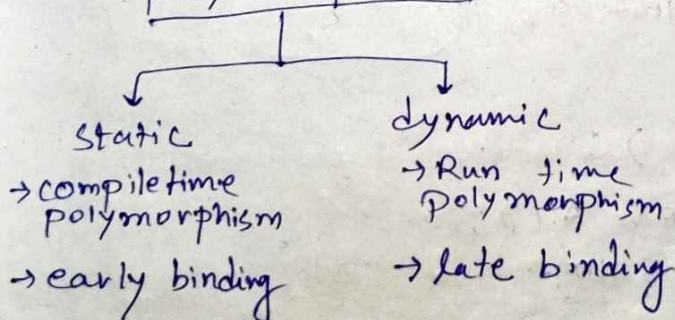 static
→ compiletime
polymorphism
→ early binding
dynamic
→ Run time
polymorphism
→ late binding